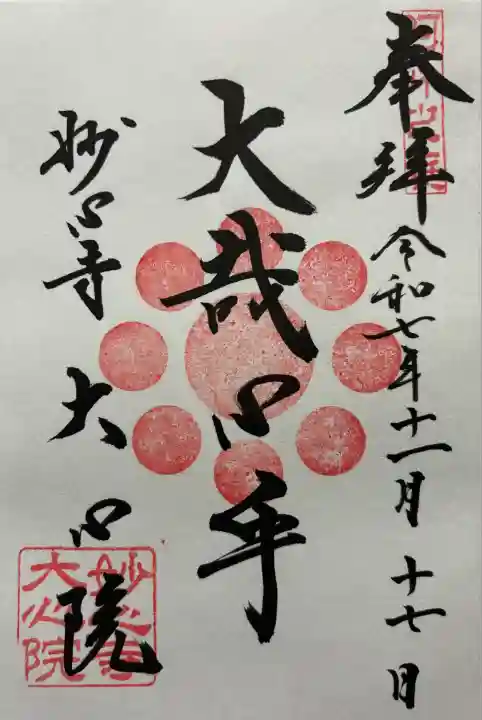 奉拝
令和七年十一月十七日
大哉心乎
妙心寺大心院
妙心寺
大心院